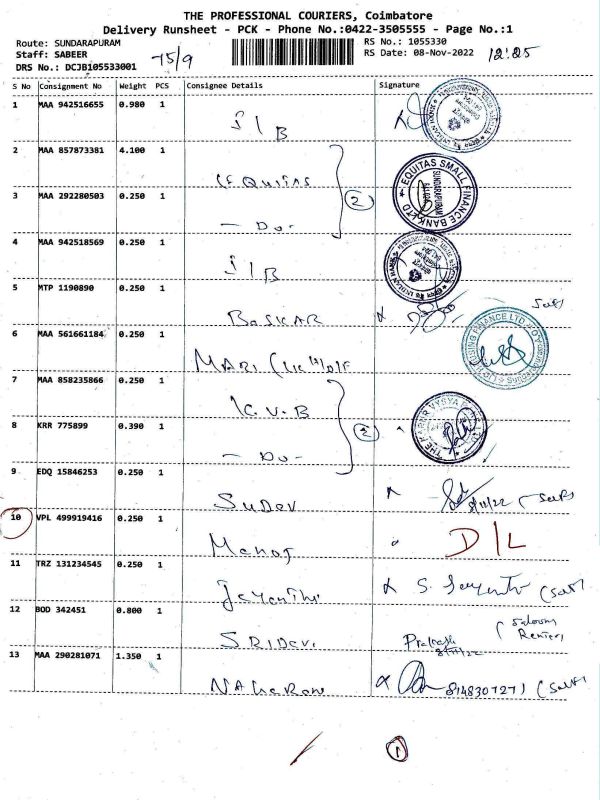 THE PROFESSIONAL COURIERS, Coimbatore
Delivery Runsheet - PCK - Phone No.:0422-3505555 - Page No.:1
Route: SUNDARAPURAM
Staff: SABEER
DRS No.: DCJB105533001
75/9
RS No.: 1055330
RS Date: 08-Nov-2022
12:25
S No Consignment No Weight PCS Consignee Details Signature
1 MAA 942516655 0.980 1 SIB
2 MAA 857873381 4.100 1 EQUITAS
EQUITAS SMALL FINANCE BANK LTD SUNDARAPURAM
3 MAA 292280503 0.250 1 - Do - (2)
4 MAA 942518569 0.250 1 SIB
5 MTP 1190890 0.250 1 BASKAR
6 MAA 561661184 0.250 1 MARI (LIC
7 MAA 858235866 0.250 1 K.V.B
8 KRR 775899 0.390 1 - Do - (2)
9 EDQ 15846253 0.250 1 SUDEV 8/11/22
10 VPL 499919416 0.250 1 Manoj D/L
11 TRZ 131234545 0.250 1 Jeyanthi
12 BOD 342451 0.800 1 SRIDEVI Prakash 8/11/22
13 MAA 290281071 1.350 1 8148307271
1